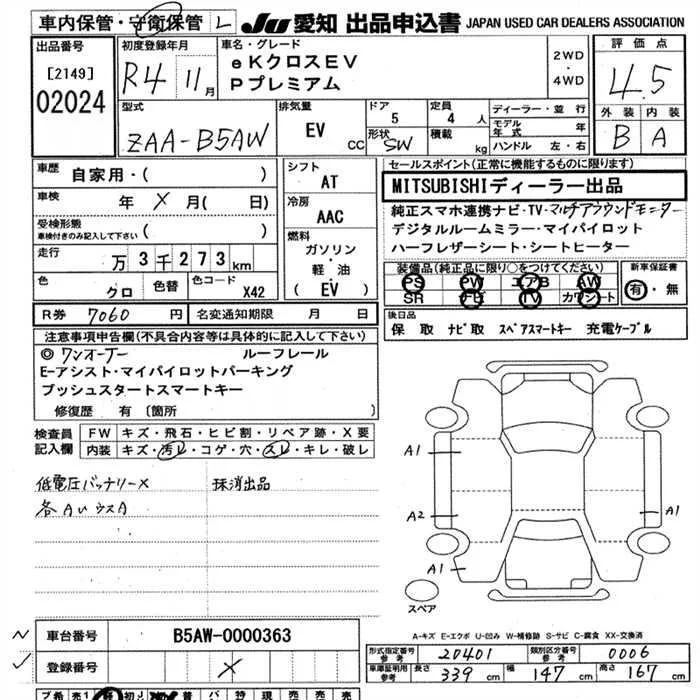 車内保管・守衛保管 L JU 愛知 出品申込書 JAPAN USED CAR DEALERS ASSOCIATION
出品番号
[2149]
02024
初度登録年月
R4 11月
車名・グレード
eKクロスEV
Pプレミアム
2WD
・
4WD
評価点
4.5
外装 内装
B A
型式
ZAA-B5AW
排気量
EV CC
ドア
5
形状
SW
定員
4 人
積載
kg
ディーラー・並行
モデル年式 年
ハンドル 左・右
車歴 自家用・( )
車検 年 X 月( 日)
受検形態
車検付きのみ記入して下さい ( )
走行 万 3 千 2 7 3 km
色 クロ 色替 色コード X42
シフト
AT
冷房
AAC
燃料
ガソリン
・
軽・油
(EV)
セールスポイント(正常に機能するものに限ります)
MITSUBISHIディーラー出品
純正スマホ連携ナビ・TV・マルチアラウンドモニター
デジタルルームミラー・マイパイロット
ハーフレザーシート・シートヒーター
装備品(純正品に限り○をつけてください)
PS PW エアB AW
SR ナビ TV カワシート
新車保証書
有・無
R券 7060 円 名変通知期限 月 日
後日品
保 取 ナビ取 スペアスマートキー 充電ケーブル
注意事項申告欄(不具合内容等は具体的に記入して下さい)
◎ ワンオーナー ルーフレール
E-アシスト・マイパイロットパーキング
プッシュスタートスマートキー
修復歴 有 〔箇所 〕
検査員
記入欄
FW キズ・飛石・ヒビ割・リペア跡・X要
内装 キズ・汚レ・コゲ・穴・スレ・キレ・破レ
低電圧バッテリーX 抹消出品
各AUウスA
A1
A2
A1
A1
スペア
A-キズ E-エクボ U-凹み W-補修跡 S-サビ C-腐食 XX-交換済
車台番号 B5AW-0000363
登録番号 X
形式指定番号
参考
20401
類別区分番号
参考
0006
車庫証明用
参考
長さ 339 cm 幅 147 cm 高さ 167 cm